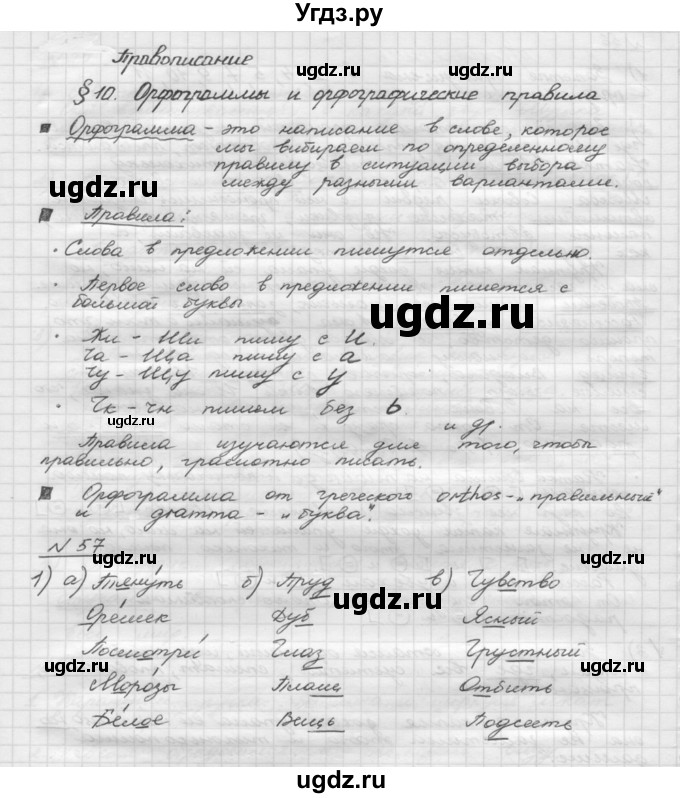 Угдз.ру
Правописание
§ 10. Орфограммы и орфографические правила
Орфограмма - это написание в слове, которое
мы выбираем по определенному
правилу в ситуации выбора
между разными вариантами.
Правила:
· Слова в предложении пишутся отдельно.
· Первое слово в предложении пишется с
большой буквы
· Жи - Ши пишу с и.
Ча - Ща пишу с а
Чу - Щу пишу с у
· Чк - чн пишем без ь
и др.
Правила изучаются для того, чтобы
правильно, грамотно писать.
Орфограмма от греческого orthos - „правильный“
и gramma - „буква“.
N 57
1) а) Тянуть б) Пруд в) Чувство
Орешек Дуб Ясный
Посмотри Глаз Грустный
Морозы Плащ Отбить
Белое Вищь Подсесть
ugdz.ru
ugdz.ru
ugdz.ru
ugdz.ru
ugdz.ru
ugdz.ru
ugdz.ru
ugdz.ru
ugdz.ru
ugdz.ru
ugdz.ru
ugdz.ru
ugdz.ru